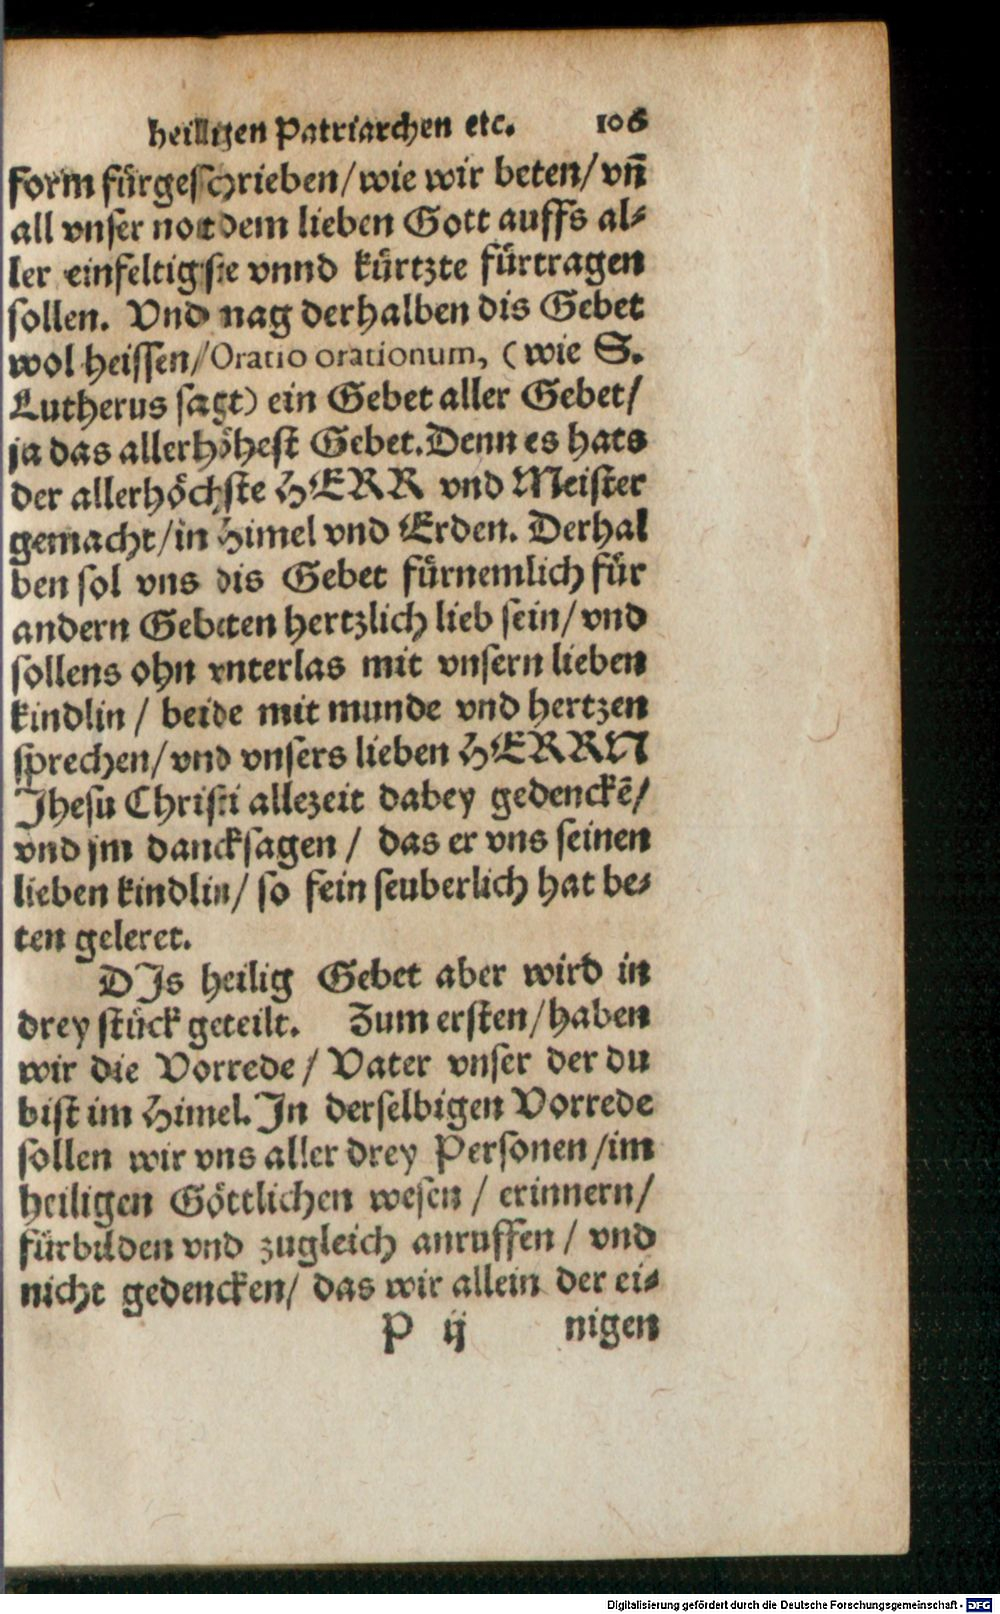 heiligen Patriarchen etc. 106
form fürgeschrieben/ wie wir beten/ vñ
all vnser not dem lieben Gott auffs al⸗
ler einfeltigste vnnd kürtzte fürtragen
sollen. Vnd mag derhalben dis Gebet
wol heissen/ Oratio orationum, (wie S.
Lutherus sagt) ein Gebet aller Gebet/
ja das allerhöhest Gebet. Denn es hats
der allerhöchste HERR vnd Meister
gemacht/ in Himel vnd Erden. Derhal
ben sol vns dis Gebet fürnemlich für
andern Gebeten hertzlich lieb sein/ vnd
sollens ohn vnterlas mit vnsern lieben
kindlin / beide mit munde vnd hertzen
sprechen/ vnd vnsers lieben HERRN
Jhesu Christi allezeit dabey gedenckē/
vnd jm dancksagen / das er vns seinen
lieben kindlin/ so fein seuberlich hat be⸗
ten geleret.
DJs heilig Gebet aber wird in
drey stück geteilt. Zum ersten/ haben
wir die Vorrede / Vater vnser der du
bist im Himel. Jn derselbigen Vorrede
sollen wir vns aller drey Personen / im
heiligen Göttlichen wesen / erinnern/
fürbilden vnd zugleich anruffen / vnd
nicht gedencken/ das wir allein der ei⸗
P ij nigen
Digitalisierung gefördert durch die Deutsche Forschungsgemeinschaft - DFG